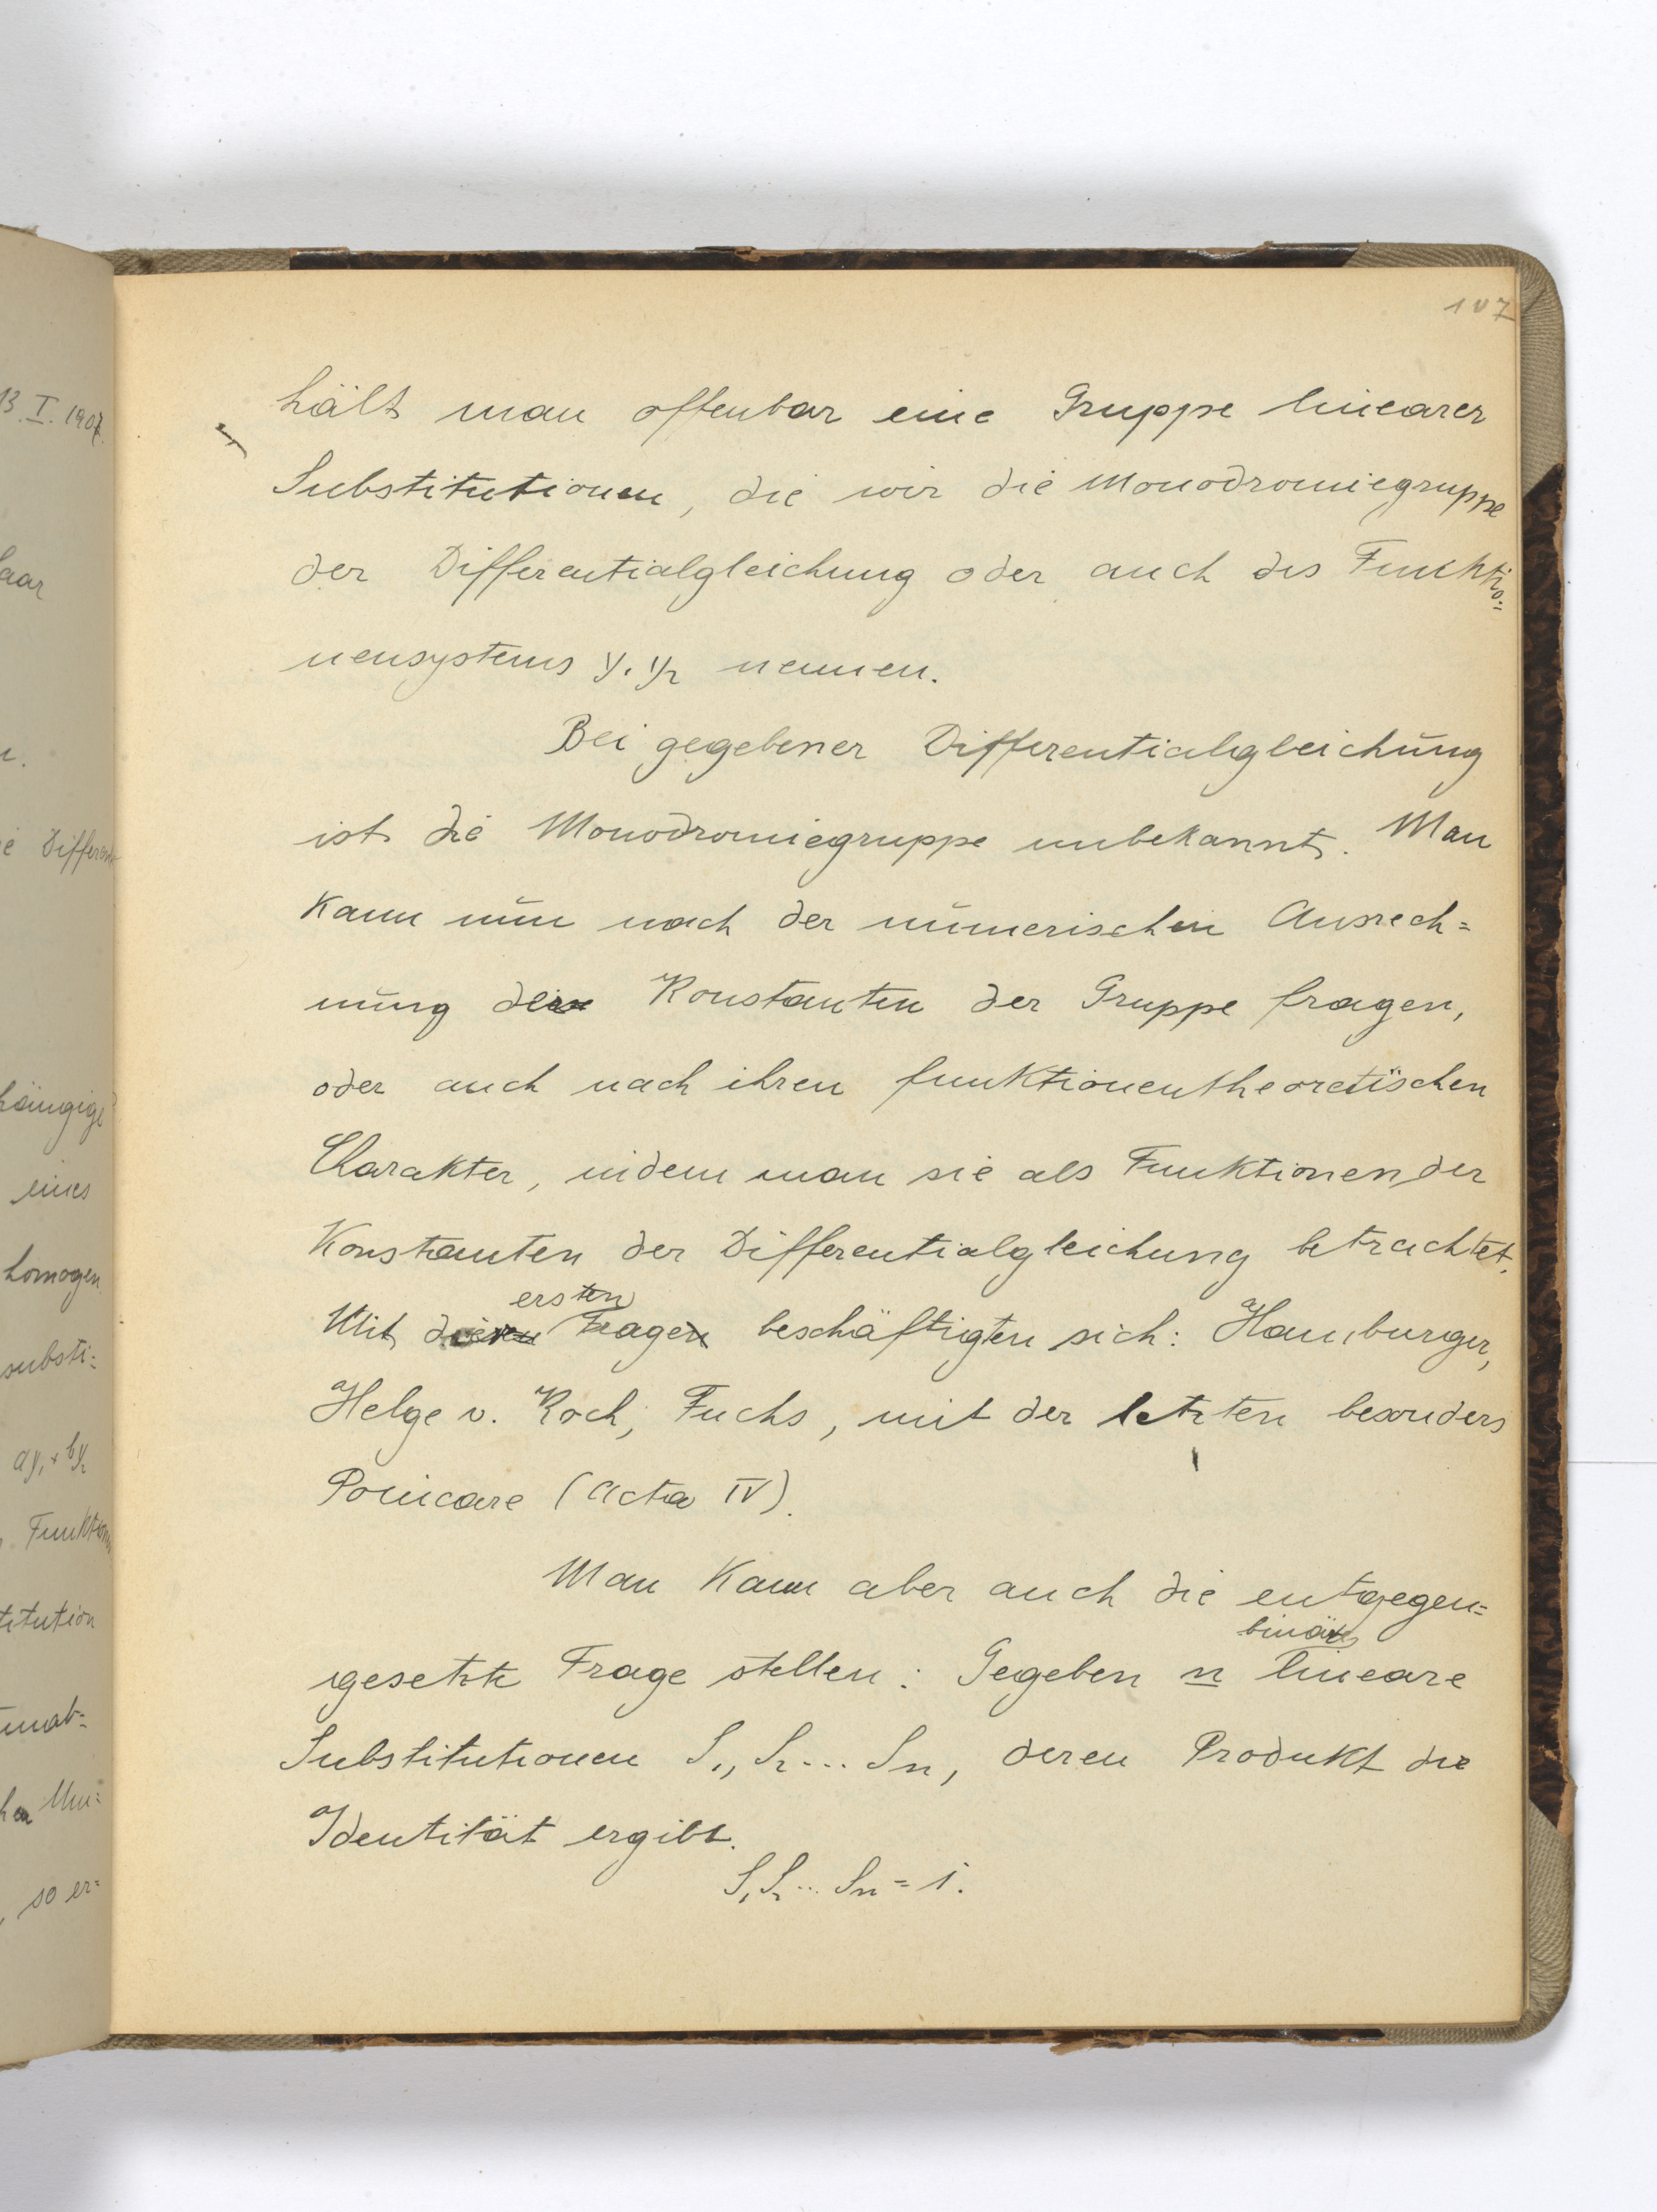 13. I. 1907.
aar
n.
ie Differenti
hängige
eines
homogen
substi=
ay₁ + by₂
Funktion
titution
unab=
hen Um=
, so er=
107
hält man offenbar eine Gruppe linearer
Substitutionen, die wir die Monodromiegruppe
der Differentialgleichung oder auch des Funktio=
nensystems y₁ y₂ nennen.
Bei gegebener Differentialgleichung
ist die Monodromiegruppe unbekannt. Man
kann nun nach der numerischen Ausrech=
nung der Konstanten der Gruppe fragen,
oder auch nach ihren funktionentheoretischen
Charakter, indem man sie als Funktionen der
Konstanten der Differentialgleichung betrachtet.
ersten
Mit der Frage beschäftigten sich: Hamburger,
Helge v. Koch, Fuchs, mit der letzten besonders
Poincare (Acta IV).
Man kann aber auch die entgegen=
binäre
gesetzte Frage stellen: Gegeben n lineare
Substitutionen S₁, S₂ ... Sn, deren Produkt die
Identität ergibt.
S₁ S₂ ... Sn = 1.